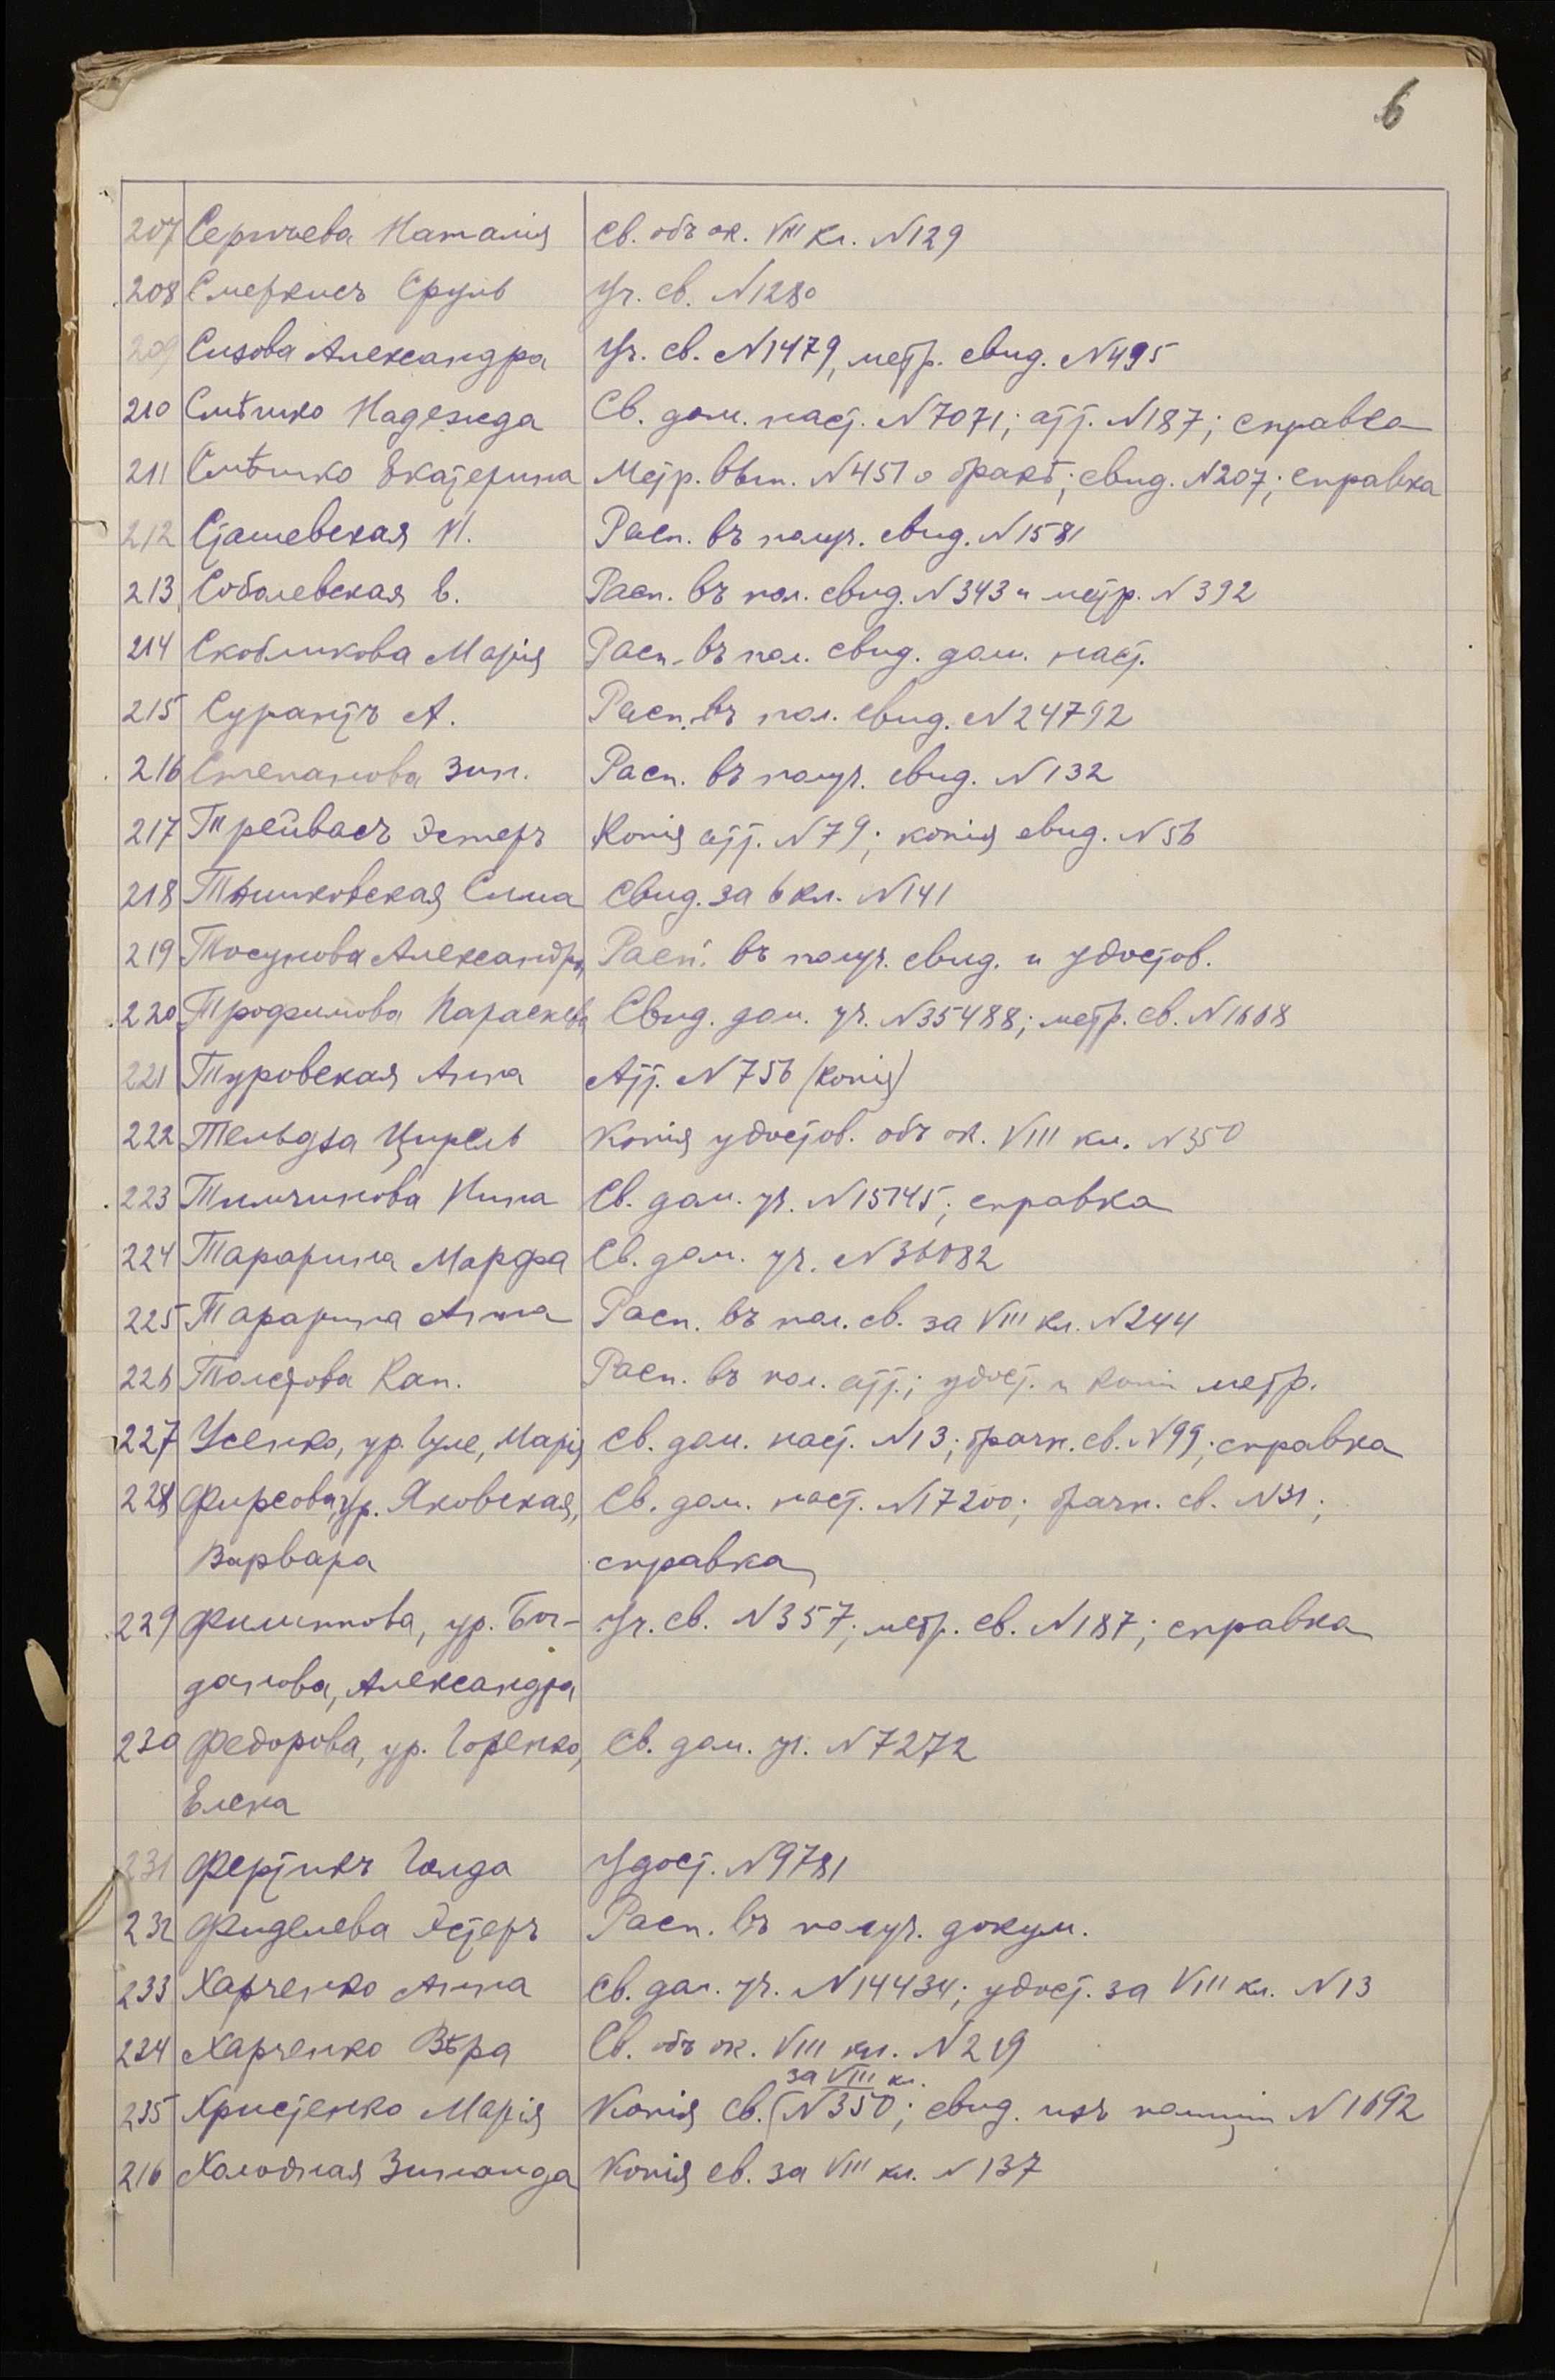 6
207 Сергѣева Наталія Св. объ ок. VIII кл. N129
208 Смеркисъ Сруль Уч. св. N1280
209 Сизова Александра Уч. св. N1479, метр. свид. N495
210 Смѣшко Надежда Св. дом. наст. N7071; атт. N187; справка
211 Смѣшко Екатерина Метр. вып. N451 о бракѣ; свид. N207; справка
212 Сташевская И. Расп. въ получ. свид. N1581
213 Соболевская Е. Расп. въ пол. свид. N343 и метр. N392
214 Скобликова Марія Расп. въ пол. свид. дом. наст.
215 Сурантъ А. Расп. въ пол. свид. N24792
216 Степанова Зин. Расп. въ получ. свид. N132
217 Трейвасъ Эстеръ Копія атт. N79; копія свид. N56
218 Тышковская Сима Свид. за 6 кл. N141
219 Тосунова Александра Расп. въ получ. свид. и удостов.
220 Трофимова Параскева Свид. дом. уч. N35488; метр. св. N1668
221 Туровская Анна Атт. N756 (копія)
222 Тельдза Цирель Копія удостов. объ ок. VIII кл. N350
223 Тимчинова Нина Св. дом. уч. N15145; справка
224 Тарарина Марфа Св. дом. уч. N36082
225 Тарарина Анна Расп. въ пол. св. за VIII кл. N244
226 Толстова Кап. Расп. въ пол. атт.; удост. и копіи метр.
227 Усенко, ур. Гуле, Марія Св. дом. наст. N13; брачн. св. N99; справка
228 Фирсова, ур. Яковская, Св. дом. наст. N17200; брачн. св. N31;
Варвара справка
229 Филиппова, ур. Бог- Уч. св. N357; метр. св. N187; справка
данова, Александра
230 Федорова, ур. Горенко, Св. дом. уч. N7272
Елена
231 Фертикъ Голда Удост. N9781
232 Фиделева Эстеръ Расп. въ получ. докум.
233 Харченко Анна Св. дом. уч. N14434; удост. за VIII кл. N13
234 Харченко Вѣра Св. объ ок. VIII кл. N219
за VIII кл.
235 Христенко Марія Копія св. N350; свид. изъ полиціи N1692
216 Холодная Зинаида Копія св. за VIII кл. N137